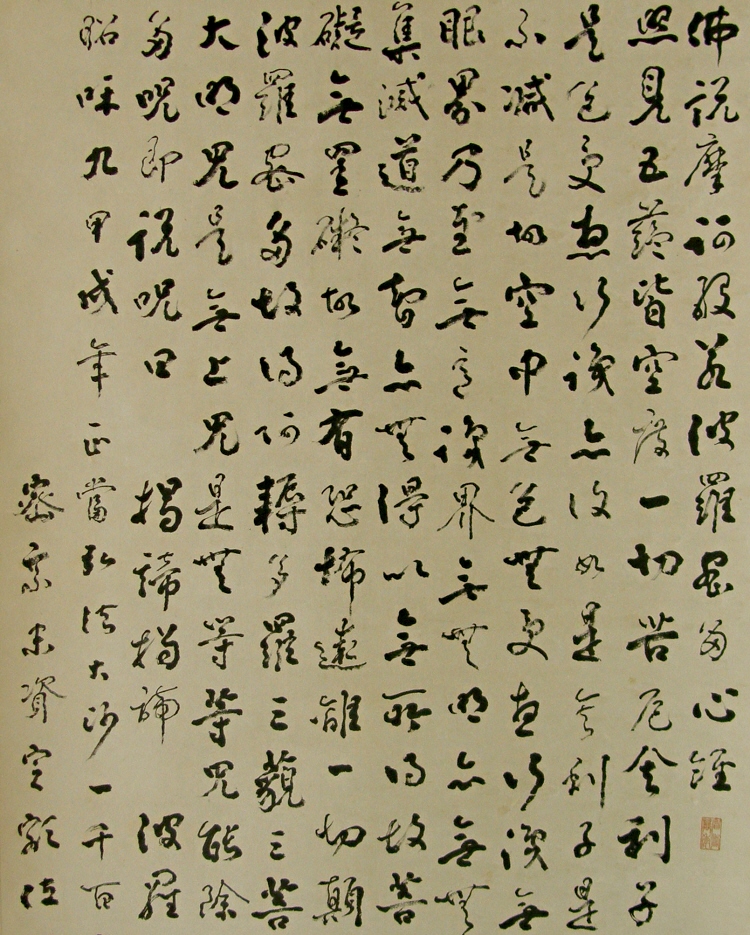 佛説摩訶般若波羅蜜多心經
照見五蘊皆空度一切苦厄舍利子
是色受想行識亦復如是舍利子是
不減是故空中無色無受想行識無
眼界乃至無意識界無無明亦無無
集滅道無智亦無得以無所得故菩
礙無罣礙故無有恐怖遠離一切顛
波羅蜜多故得阿耨多羅三藐三菩
大明咒是無上咒是無等等咒能除
多呪即説呪曰 揭諦揭諦 波羅
昭咊九甲戌年正當弘法大師一千百
密宗末資